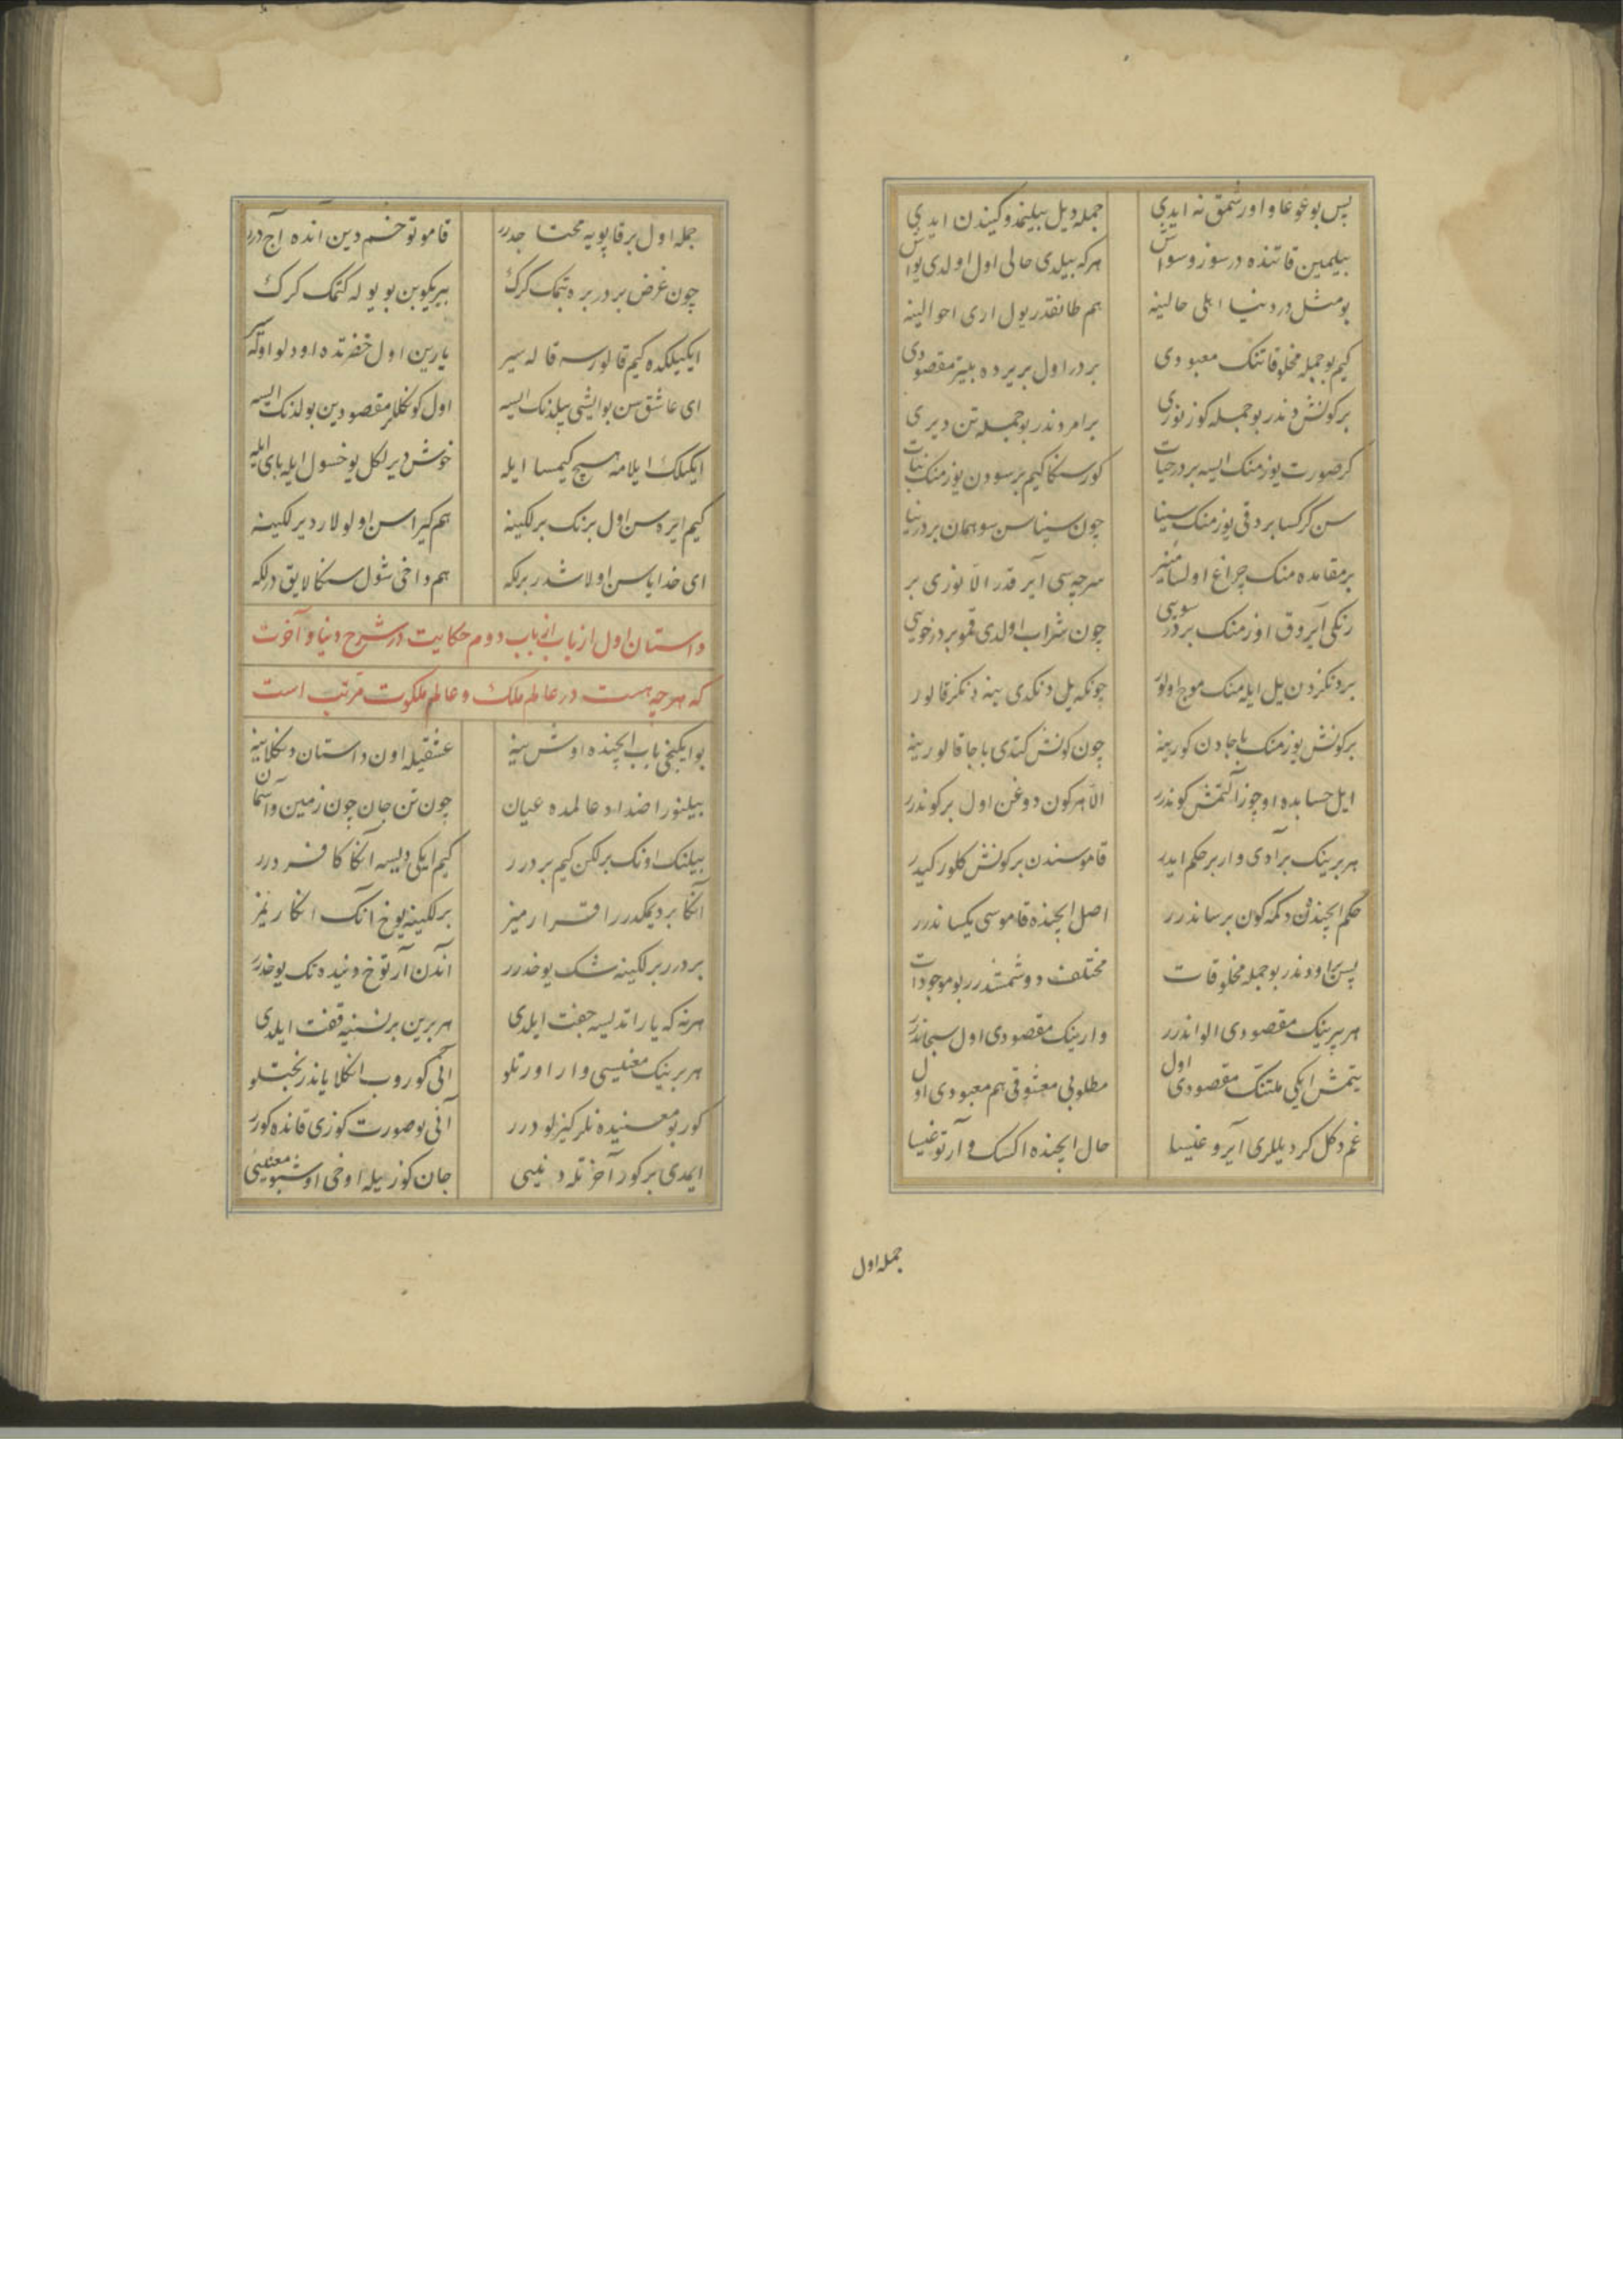 پس بوغوغا و اورشمق نه ایدی جمله دیل بیلیند وکیندن ایدی
بیلمین قاتنده درسوز وسواش هرکه بیلدی حالی اول اولدی یواش
بومثل در دنیا اهلی حالینه هم طانقدر یول اری احوالینه
کیم بو جمله مخلوقاتنک معبودی بردر اول بریرده بلیتر مقصودی
برکونش دندر بو جمله کوز نوری برامردندر بو جمله تن دیری
کر صورت یوزمنک ایسه بردر حیات کورسنکا کیم برسودن یوزمنک نبات
سن کرکسا بردقی یوزمنک سینا چون سیناسن سو همان بردر ینا
برمقامده منک چراغ اولسا منیر هرجه سی آیرقدر الا نوری بر
رنکی آیروق اوزمنک بردر سوسی چون شراب اولدی قموبردر خوسی
بردنکزدن یل ایله منک موج اولور چونکه یل دنکدی ینه دنکز قالور
برکونش یوزمنک باجادن کورینه چون کونش کتدی باجا قالور ینه
ایل حسابده اوچوز آلتمش کوندر الا هرکون دوغن اول برکوندر
هر برینک برآدی وار بر حکم ایدر قاموسندن برکونش کلور کیدر
حکم ایچندن دکمه کون برساندرر اصل ایچنده قاموسی یکساندرر
پس بر اودندر بو جمله مخلوقات مختلف دوشمشدرر بو موجودات
هر برینک مقصودی الواندرر وارینک مقصودی اول سبحاندرر
یتمش ایکی ملتنک مقصودی اول مطلوبی معشوقی هم معبودی اول
غم دکل کر دیللری آیروغیسا حال ایچنده اکسک و آرتوغیسا
جمله اول
جمله اول برقاپویه محتاجدرر قاموتوخسم دین آنده آج درر
چون غرض بردر بره تیمک کرک بیریکوبن بو یوله کتمک کرک
ایکیلکده کیم قالورسه قاله سیر یارین اول حضرتده اودلو اوته کیر
ای عاشق سن بوایشی بیلدنک ایسه اول کونکللر مقصودین بولدنک ایسه
ایکیلک ایلامه هیچ کیمسا ایله خوش دیرلکل یوخسول ایله بای ایله
کیم ایره سن اول برنک برلکینه هم کیراسن اولولار دیرلکینه
ای خدایا سن اولاشدر برلکه هم داخی شول سنکا لایق درلکه
داستان اول از باب دوم حکایت در شرح دنیا و آخرت
که هر چه هست در عالم ملک و عالم ملکوت مرتب است
بوایکنجی باب ایچنده اوش ینه عشقیله اون داستان دنکلاینه
بیلنور اضداد عالمده عیان چون تن جان چون زمین و آسمان
بیلنک اونک برلکن کیم بردرر کیم ایکی دیسه آنکا کافردرر
آنکا بردیمکدرر اقرارمیز برلکینه یوخ آنک انکاریمز
بردرر برلکینه شک یوخدرر آندن آرتوخ دنیده تک یوخدرر
هرنه که یاراتدیسه جفت ایلدی هر برین برنسنیه قفت ایلدی
هر برینک معنیسی وار اورتلو آنی کوروب انکلایاندر بختلو
کور بومعنیده نلر کیزلودرر آنی بوصورت کوزی قانده کورر
ایمدی برکور آخرتله دنییی جان کوزیله اوخی اوشبو معنییی